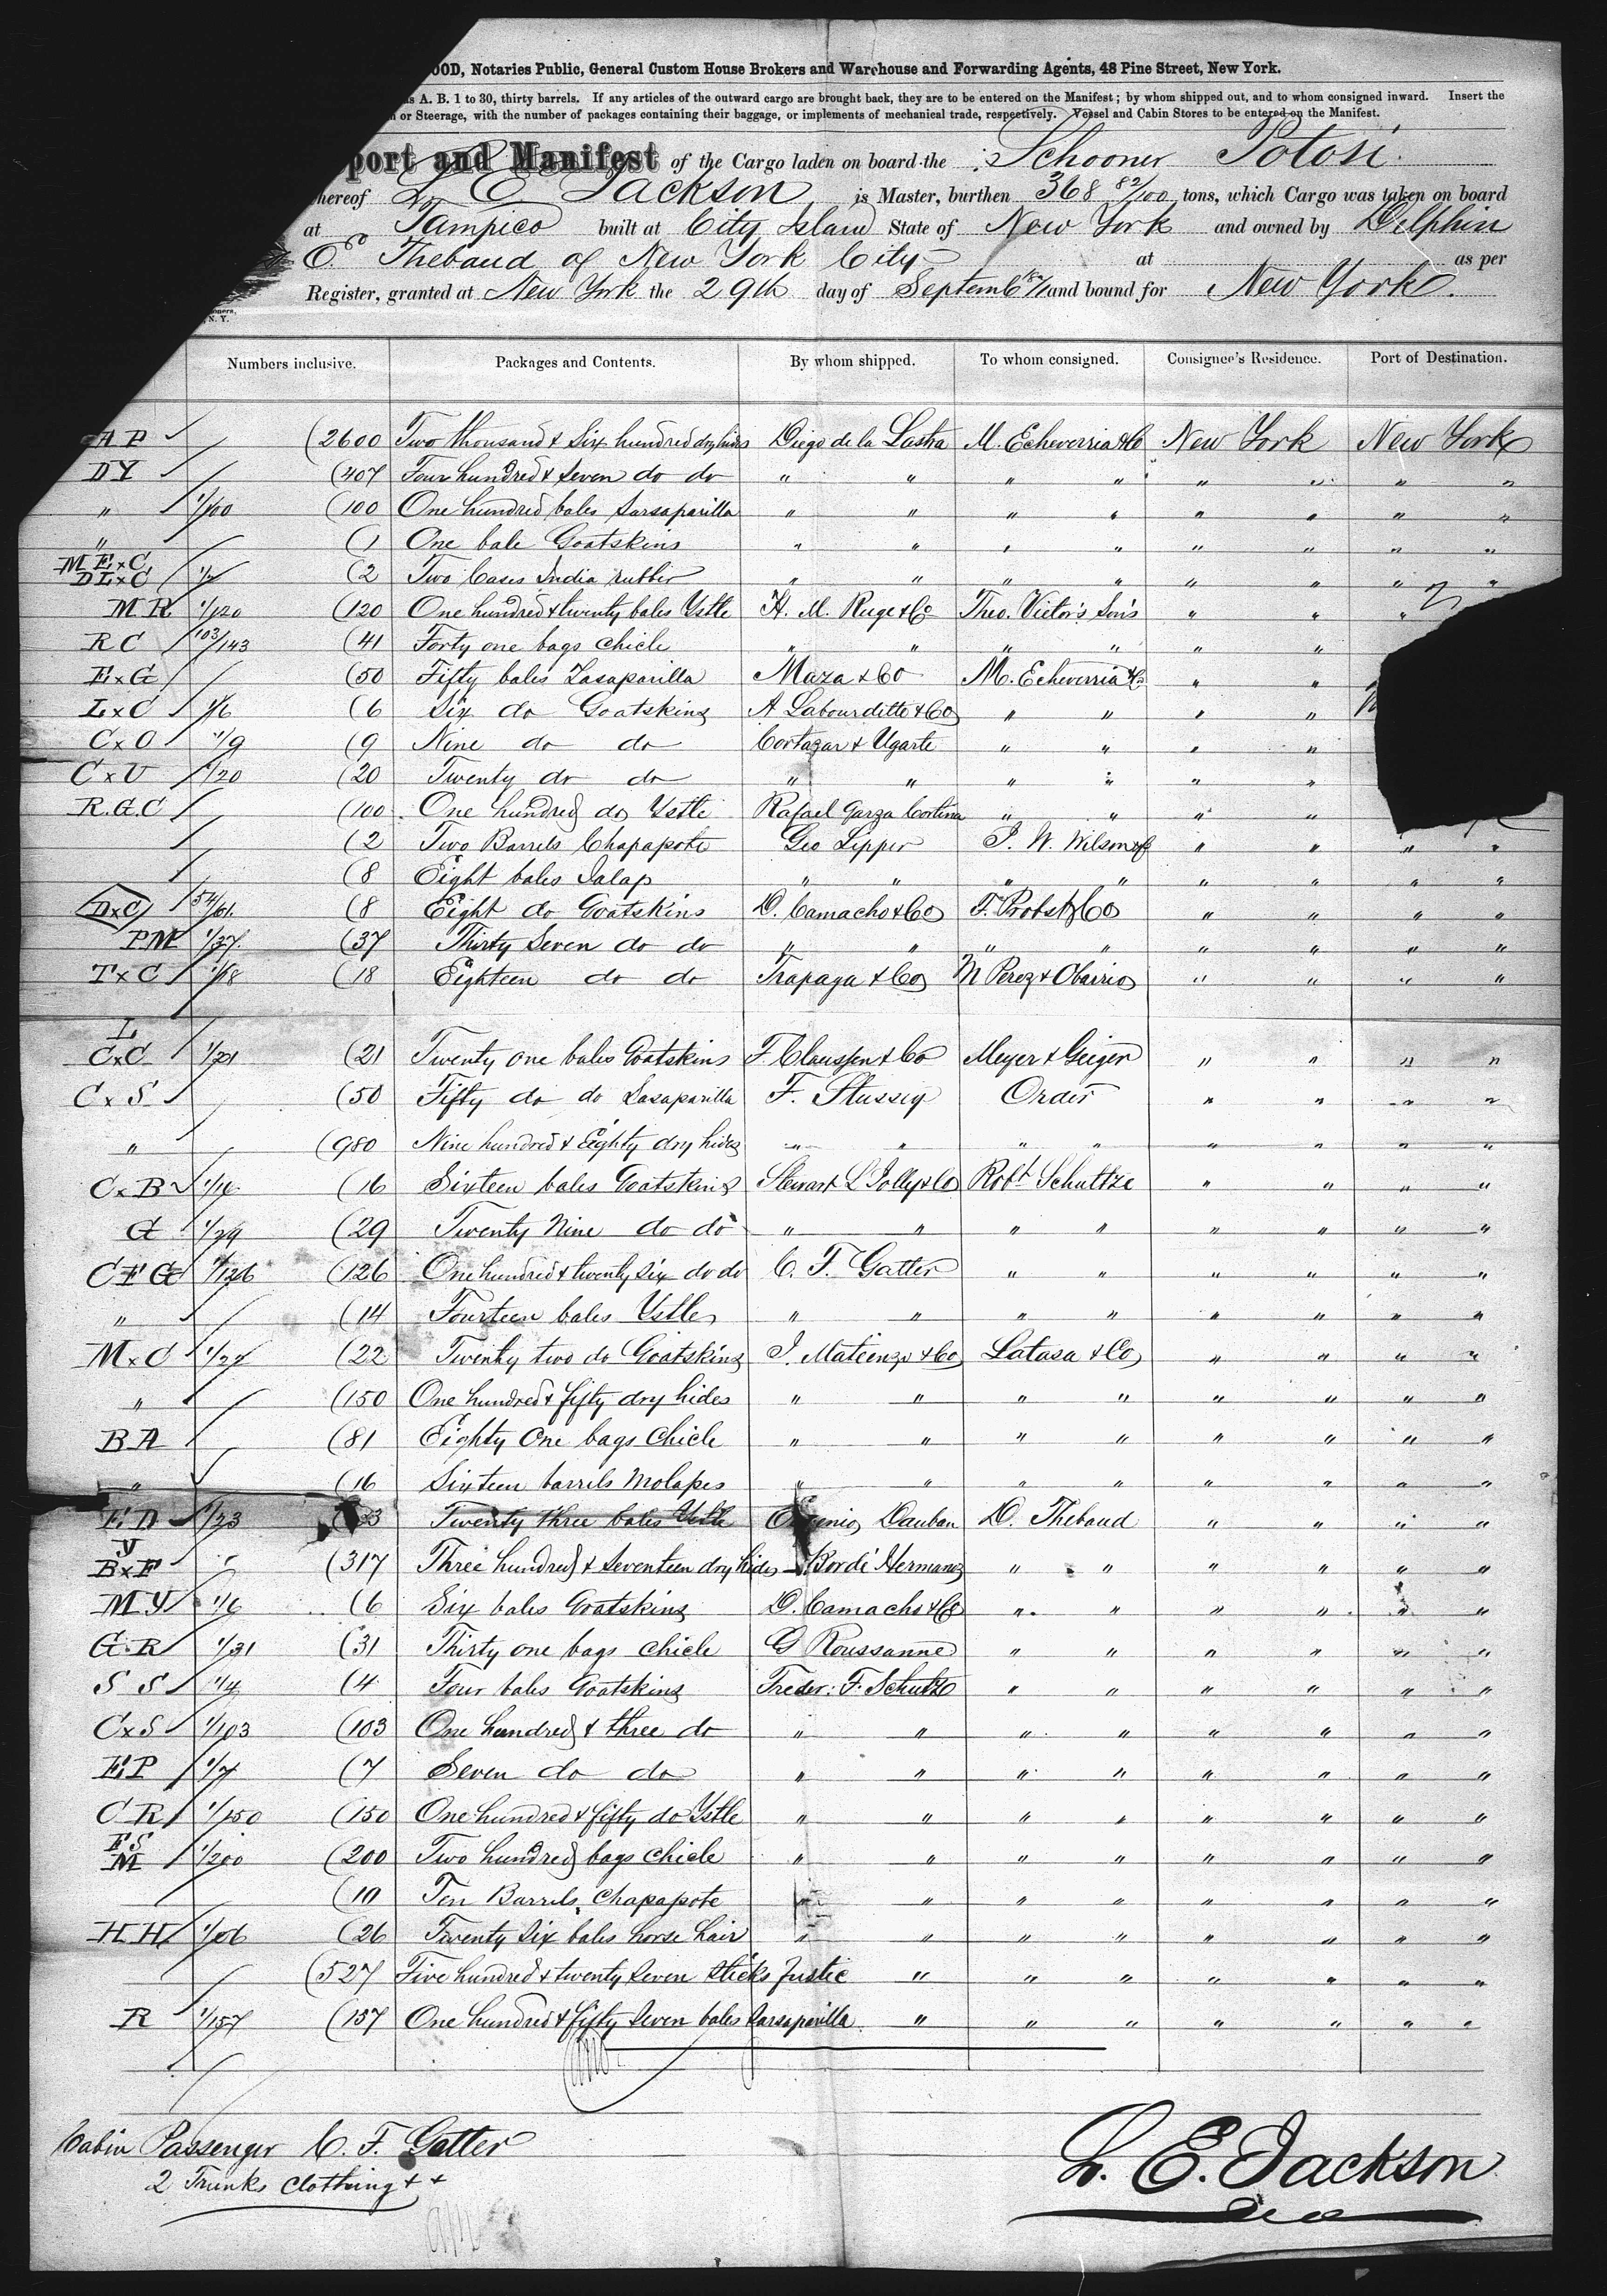 OOD, Notaries Public, General Custom House Brokers and Warehouse and Forwarding Agents, 48 Pine Street, New York.
as A. B. 1 to 30, thirty barrels. If any articles of the outward cargo are brought back, they are to be entered on the Manifest; by whom shipped out, and to whom consigned inward. Insert the
or Steerage, with the number of packages containing their baggage, or implements of mechanical trade, respectively. Vessel and Cabin Stores to be entered on the Manifest.
port and Manifest of the Cargo laden on board the Schooner Potosi
hereof L. E. Jackson is Master, burthen 368 82/100 tons, which Cargo was taken on board
at Tampico built at City Island State of New York and owned by Delphin
E. Thebaud of New York City at as per
Register, granted at New York the 29th day of September and bound for New York.
oners,
N. Y.
Numbers inclusive. Packages and Contents. By whom shipped. To whom consigned. Consignee's Residence. Port of Destination.
A P (2600 Two thousand & Six hundred dry hides Diego de la Lastra M. Echeverria & Co New York New York
D Y (407 Four hundred & Seven do do " " " " " " " "
" 1/100 (100 One hundred bales Sarsaparilla " " " " " " " "
" (1 One bale Goatskins " " " " " " " "
M E x C
D L x C 1/2 (2 Two Cases India rubber " " " " " " " "
M R 1/120 (120 One hundred & twenty bales Ystle H. M. Ruge & Co Theo. Victor's Son's " " "
R C 103/143 (41 Forty one bags Chicle " " " " " "
E x G (50 Fifty bales Zasaparilla Maza & Co M. Echeverria & Co " "
L x C 1/6 (6 Six do Goatskins A Labourditte & Co " " " "
C x O 1/9 (9 Nine do do Cortazar & Ugarte " " " "
C x U 1/20 (20 Twenty do do " " " " " "
R. G. C (100 One hundred do Ystle Rafael Garza Cortina " " " "
(2 Two Barrels Chapapote Geo Lipper J. W. Wilson & Co " " " "
(8 Eight bales Jalap " " " " " " " "
D x C 54/61 (8 Eight do Goatskins D. Camacho & Co F. Probst & Co " " " "
P M 1/37 (37 Thirty Seven do do " " " " " " " "
T x C 1/18 (18 Eighteen do do Trapaga & Co M Perez & Obarrio " " " "
L
C x C 1/21 (21 Twenty one bales Goatskins F. Claussen & Co Meyer & Geiger " " " "
C x S (50 Fifty do do Sasaparilla F. Stussey Order " " " "
" (980 Nine hundred & Eighty dry hides " " " " " " " "
C x B 1/16 (16 Sixteen bales Goatskins Stewart L Jolly & Co Robt Schultze " " " "
G 1/29 (29 Twenty Nine do do " " " " " " " "
C F G 1/126 (126 One hundred & twenty six do do C. F. Gatter " " " " " "
" (14 Fourteen bales Ystle " " " " " " " "
M x C 1/22 (22 Twenty two do Goatskins J. Matienzo & Co Latasa & Co " " " "
" (150 One hundred & fifty dry hides " " " " " " " "
B A (81 Eighty One bags Chicle " " " " " " " "
" (16 Sixteen barrils Molasses " " " " " " " "
E D 1/23 3 Twenty three bales Ystle Dauban D. Thebaud " " " "
Y
B x F (317 Three hundred & Seventeen dry hides Bordé Hermanos " " " " " "
M Y 1/6 (6 Six bales Goatskins D. Camacho & Co " " " " " "
G R 1/31 (31 Thirty one bags chicle G Roussanne " " " " " "
S S 1/4 (4 Four bales Goatskins Freder: F. Schutte " " " " " "
C x S 1/103 (103 One hundred & three do " " " " " " " "
E P 1/7 (7 Seven do do " " " " " " " "
C R 1/150 (150 One hundred & fifty do Ystle " " " " " " " "
F S
M 1/200 (200 Two hundred bags chicle " " " " " " " "
(10 Ten Barrils Chapapote " " " " " " "
H H 1/26 (26 Twenty Six bales horse hair " " " " " " " "
(527 Five hundred & twenty seven sticks Fustic " " " " " " "
R 1/157 (157 One hundred & fifty Seven bales Sarsaparilla " " " " " " "
Cabin Passenger C. F. Gatter
2 Trunks Clothing
L. E. Jackson